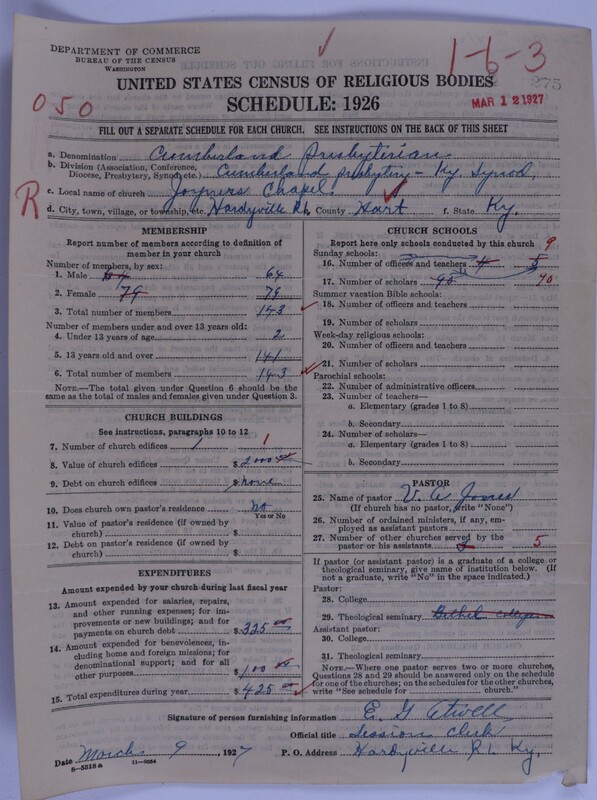 DEPARTMENT OF COMMERCE
BUREAU OF THE CENSUS
WASHINGTON
1-6-3
275
UNITED STATES CENSUS OF RELIGIOUS BODIES
SCHEDULE: 1926
MAR 12 1927
050
FILL OUT A SEPARATE SCHEDULE FOR EACH CHURCH. SEE INSTRUCTIONS ON THE BACK OF THIS SHEET
a. Denomination Cumberland Presbyterian
b. Division (Association, Conference, Diocese, Presbytery, Synod, etc.) Cumberland presbytery - Ky Synod,
R
c. Local name of church Joyners Chapel.
d. City, town, village, or township, etc. Hardyville R1. County Hart f. State Ky.
MEMBERSHIP
Report number of members according to definition of member in your church
Number of members, by sex:
1. Male 64 64
2. Female 79 79
3. Total number of members 143
Number of members under and over 13 years old:
4. Under 13 years of age 2
5. 13 years old and over 141
6. Total number of members 143
NOTE.—The total given under Question 6 should be the same as the total of males and females given under Question 3.
CHURCH BUILDINGS
See instructions, paragraphs 10 to 12
7. Number of church edifices 1 1
8. Value of church edifices $ 2000.00
9. Debt on church edifices $ none
10. Does church own pastor's residence no
Yes or No
11. Value of pastor's residence (if owned by church) $
12. Debt on pastor's residence (if owned by church) $
EXPENDITURES
Amount expended by your church during last fiscal year
13. Amount expended for salaries, repairs, and other running expenses; for improvements or new buildings; and for payments on church debt $ 325 00
14. Amount expended for benevolences, including home and foreign missions; for denominational support; and for all other purposes $ 100 00
15. Total expenditures during year $ 425 00
CHURCH SCHOOLS
Report here only schools conducted by this church 9
Sunday schools:
16. Number of officers and teachers 4 5
17. Number of scholars 95 90
Summer vacation Bible schools:
18. Number of officers and teachers
19. Number of scholars
Week-day religious schools:
20. Number of officers and teachers
21. Number of scholars
Parochial schools:
22. Number of administrative officers
23. Number of teachers—
a. Elementary (grades 1 to 8)
b. Secondary
24. Number of scholars—
a. Elementary (grades 1 to 8)
b. Secondary
PASTOR
25. Name of pastor V. A. Jones
(If church has no pastor, write "None")
26. Number of ordained ministers, if any, employed as assistant pastors
27. Number of other churches served by the pastor or his assistants 5
If pastor (or assistant pastor) is a graduate of a college or theological seminary, give name of institution below. (If not a graduate, write "No" in the space indicated.)
Pastor:
28. College
29. Theological seminary Bethel college
Assistant pastor:
30. College
31. Theological seminary
NOTE.—Where one pastor serves two or more churches, Questions 28 and 29 should be answered only on the schedule for one of the churches; on the schedules for the other churches, write "See schedule for church."
Signature of person furnishing information E. G. Atwell
Official title Session Clerk
Date March 9, 1927 P. O. Address Hardyville R1. Ky.
8-5318 a 11-9354